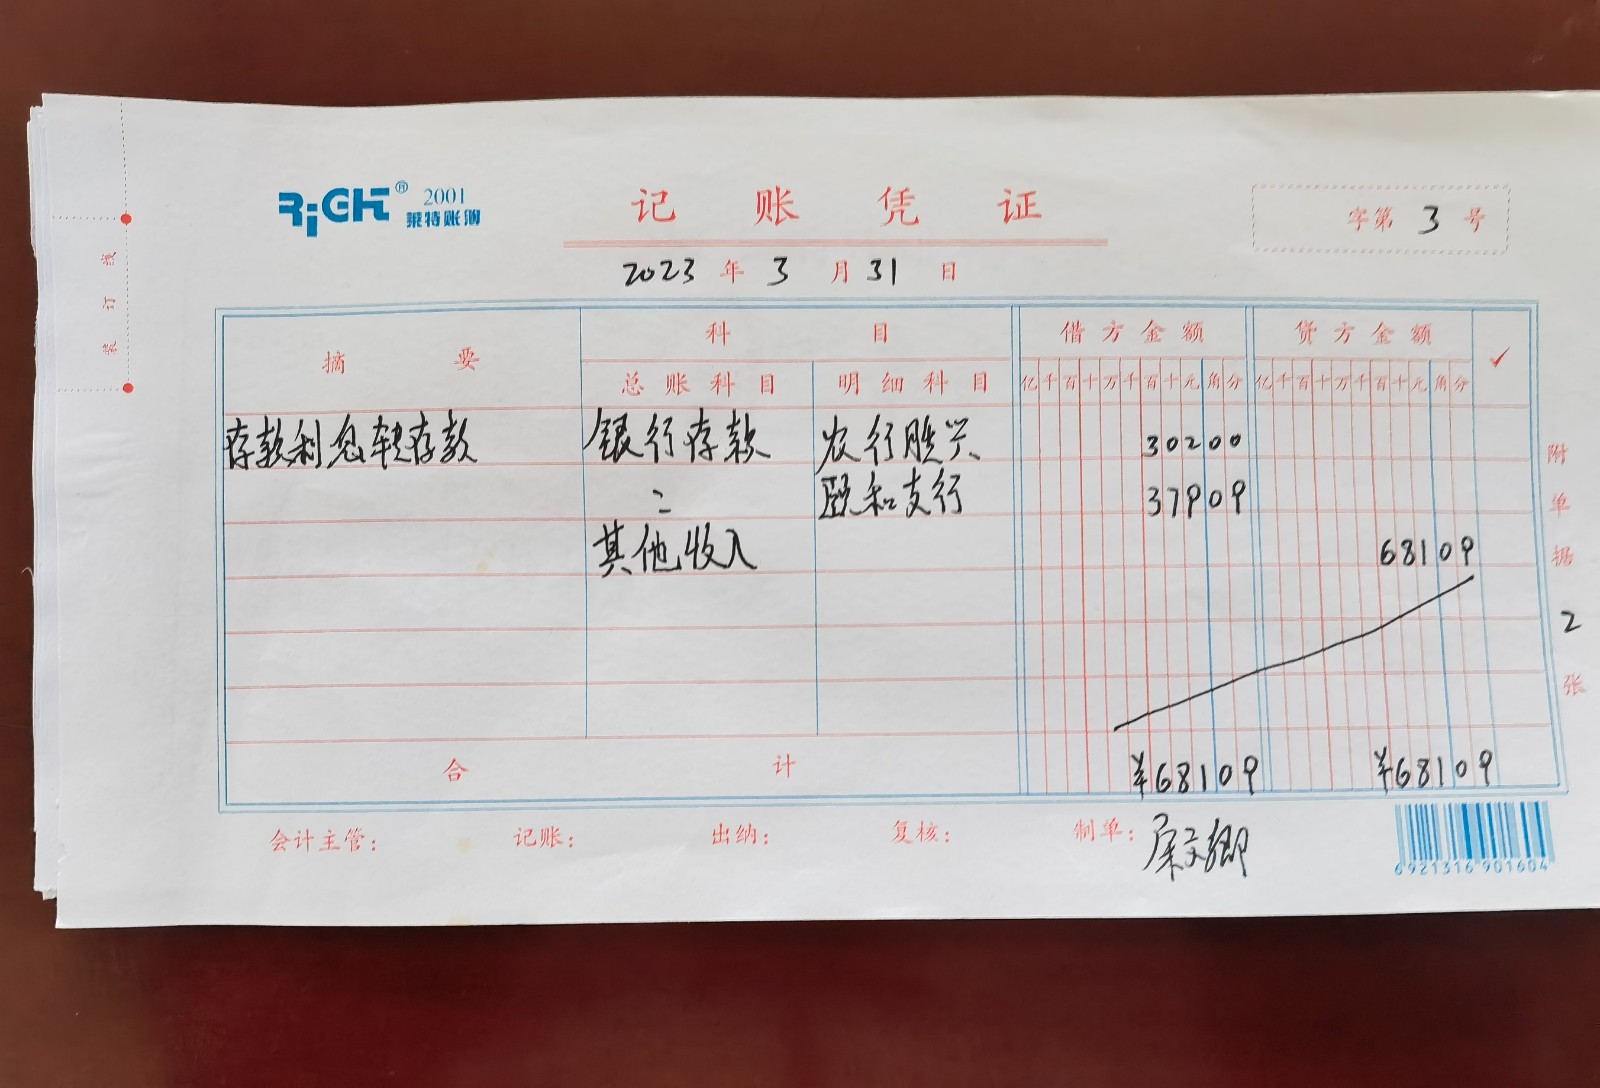 RiGHt® 2001
莱特账簿
记账凭证
字第 3 号
2023 年 3 月 31 日
摘要 科目 借方金额 贷方金额 ✓
总账科目 明细科目 亿千百十万千百十元角分 亿千百十万千百十元角分
存款利息转存款 银行存款 农行胜兴 30200
〃 颐和支行 37909
其他收入 68109
合计 ¥68109 ¥68109
附单据 2 张
会计主管: 记账: 出纳: 复核: 制单:
6921316901604
装订线